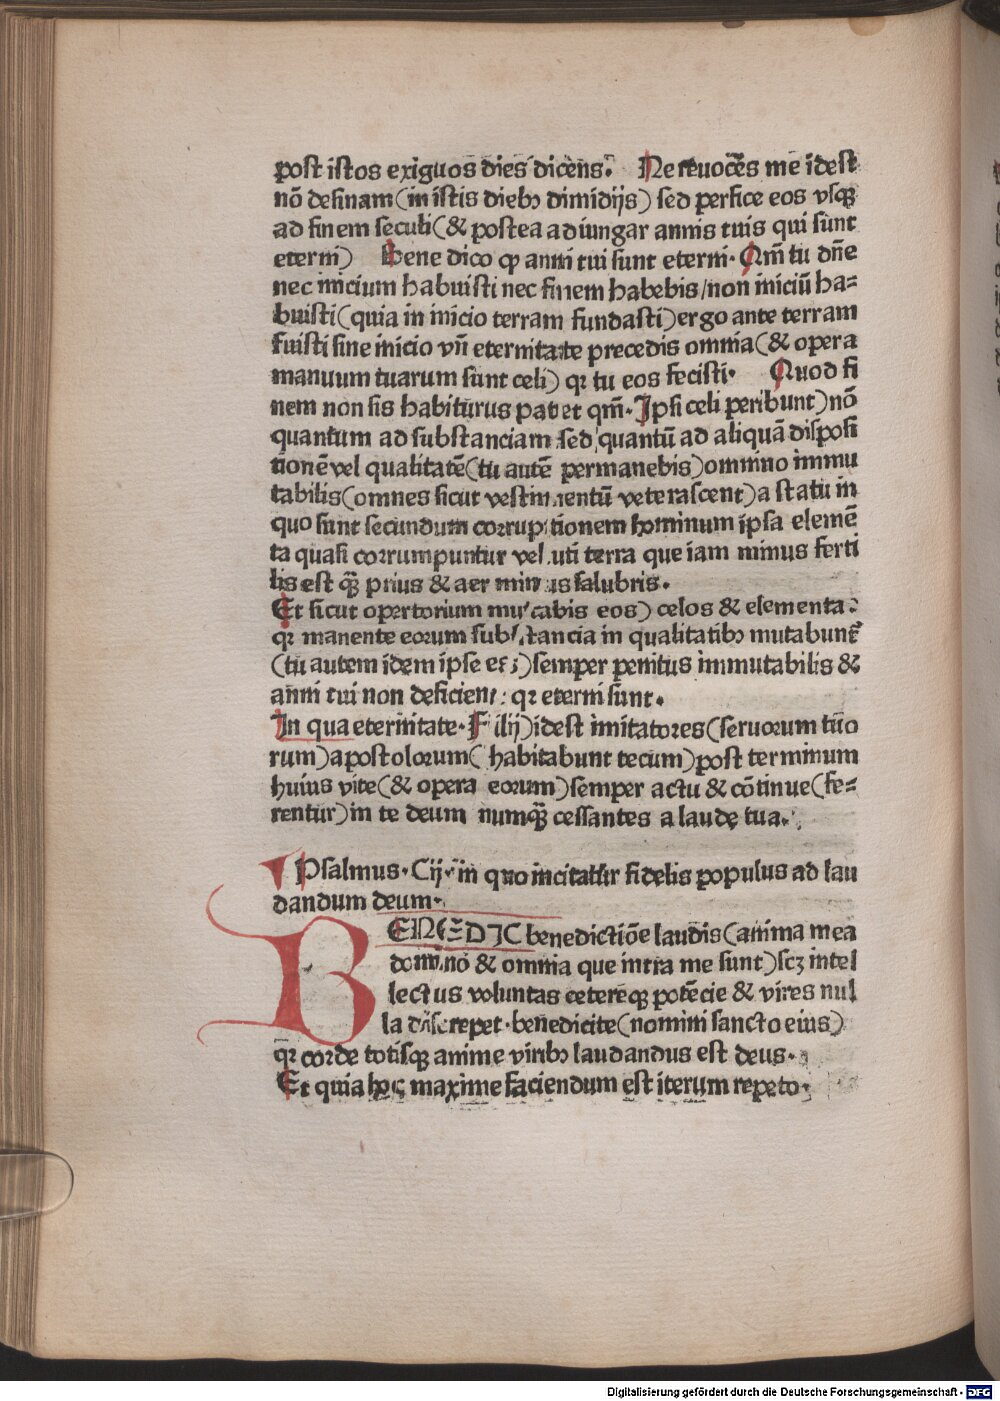 post istos exiguos dies dicens. Ne reuoces me idest
nō desinam (in istis diebꝰ dimidijs) sed perfice eos vsqꝫ
ad finem seculi (& postea adiungar annis tuis qui sunt
eterni) Bene dico ꝙ anni tui sunt eterni. Qm̄ tu dn̄e
nec inicium habuisti nec finem habebis/non iniciū ha-
buisti (quia in inicio terram fundasti) ergo ante terram
fuisti sine inicio vn̄ eternitate precedis omnia (& opera
manuum tuarum sunt celi) qꝛ tu eos fecisti. Quod fi
nem non sis habiturus patet qm̄. Ipsi celi peribunt) nō
quantum ad substanciam sed quantū ad aliquā disposi
tionē vel qualitatē (tu autē permanebis) omnino immu
tabilis (omnes sicut vestimentū veterascent) a statu in
quo sunt secundum corruptionem hominum ipsa elemē
ta quasi corrumpuntur veluti terra que iam minus ferti
lis est qᷓꝫ prius & aer minus salubris.
Et sicut opertorium mutabis eos) celos & elementa:
qꝛ manente eorum substancia in qualitatibꝰ mutabunt̄
(tu autem idem ipse es) semper penitus immutabilis &
anni tui non deficient: qꝛ eterni sunt.
In qua eternitate. Filij) idest imitatores (seruorum tuo
rum) apostolorum (habitabunt tecum) post terminum
huius vite (& opera eorum) semper actu & cōtinue (fe-
rentur) in te deum numqᷓꝫ cessantes a laude tua.
Psalmus. Cij. in quo incitatur fidelis populus ad lau
dandum deum.
BENEDIC benedictiōe laudis (anima mea
domino & omnia que intra me sunt) scꝫ intel
lectus voluntas ceterēqꝫ potēcie & vires nul
la discrepet. benedicite (nomini sancto eius)
qꝛ corde totisqꝫ anime viribꝰ laudandus est deus.
Et quia hoc maxime faciendum est iterum repeto.
Digitalisierung gefördert durch die Deutsche Forschungsgemeinschaft - DFG